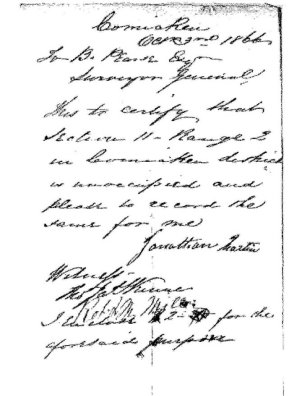 Comiaken
Octr 3rd 1866
To B. Pearse Esqr
Surveyor General
This to certify that
Section 11 - Range 2
in Comiaken district
is unoccupied and
please to record the
same for me
Jonathan Martin
Witness
I enclose $2 - for the
aforesaid purpose